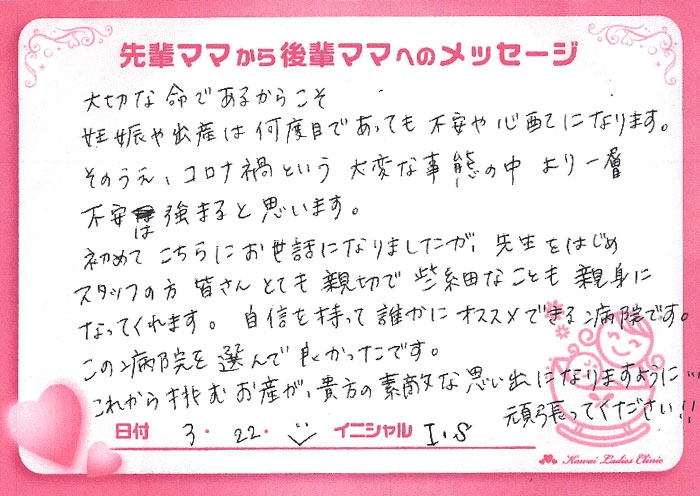 先輩ママから後輩ママへのメッセージ
大切な命であるからこそ
妊娠や出産は何度目であっても不安や心配になります。
そのうえ、コロナ禍という大変な事態の中より一層
不安は強まると思います。
初めてこちらにお世話になりましたが、先生をはじめ
スタッフの方皆さんとても親切で些細なことも親身に
なってくれます。自信を持って誰かにオススメできる病院です。
この病院を選んで良かったです。
これから挑むお産が、貴方の素敵な思い出になりますように…
頑張ってください!!
日付 3. 22. イニシャル I.S
Kawai Ladies Clinic